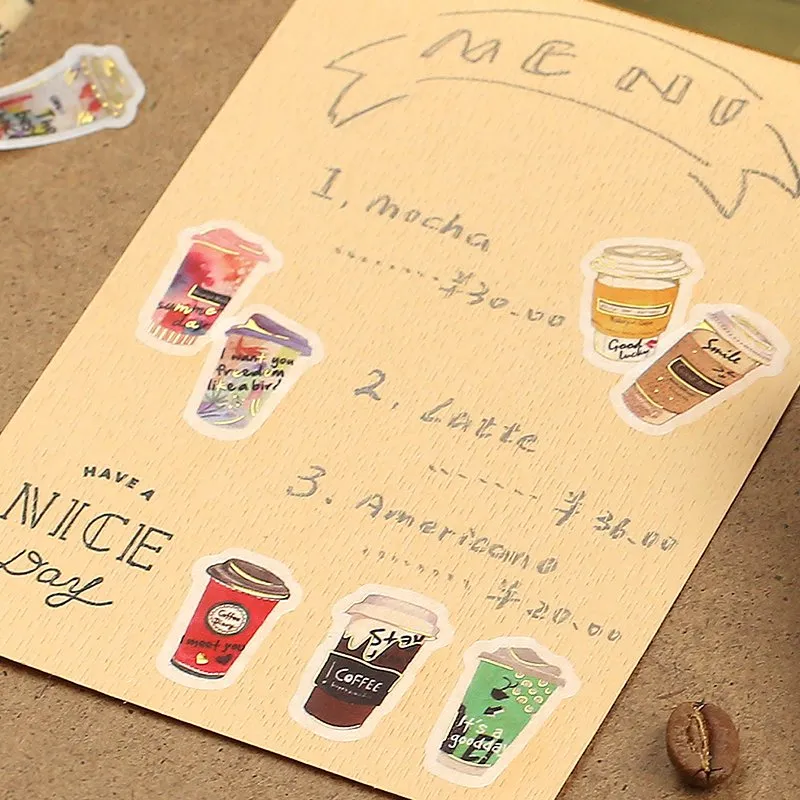 MENU
1, mocha
¥30.00
summer
day
I want you
freedom
like a bird
Good
lucky
Smile
2, Latte
¥36.00
3. Americano
¥20.00
HAVE A
NICE
Day
Coffee
meet you
COFFEE
It's a
goodday